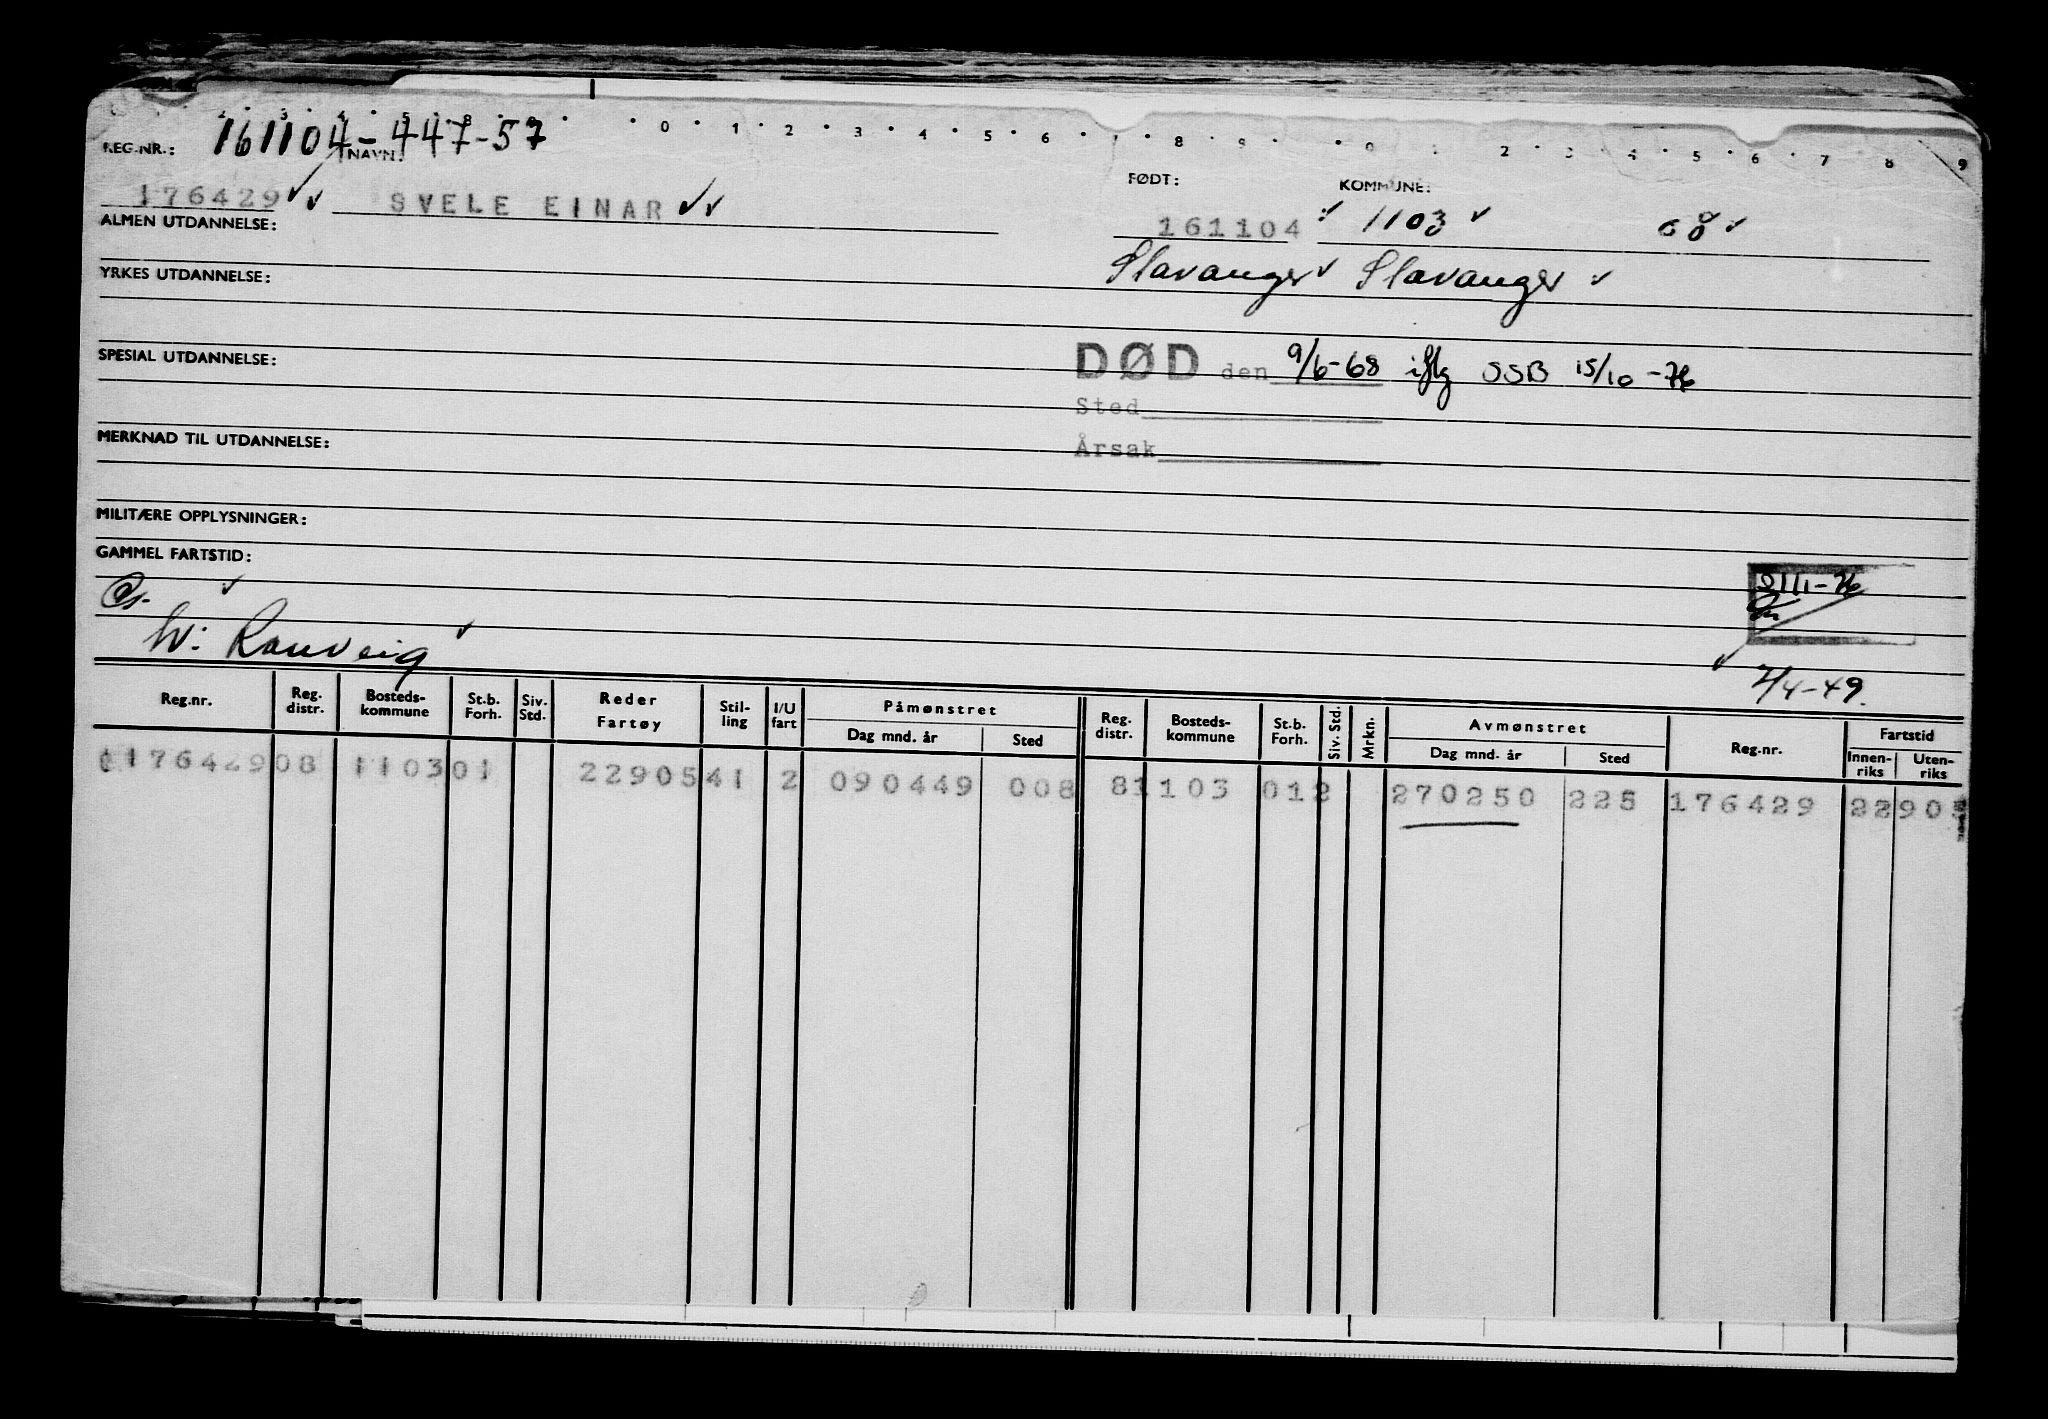 161104-447-57
0 1 2 3 4 5 6 7 8 9 0 1 2 3 4 5 6 7 8 9
REG.NR.: NAVN: FØDT: KOMMUNE:
176429 SVELE EINAR 161104 1103
ALMEN UTDANNELSE:
Stavanger Stavanger
YRKES UTDANNELSE:
DØD den 9/6-68 iflg SSB 15/10-76
SPESIAL UTDANNELSE:
Sted
MERKNAD TIL UTDANNELSE:
Årsak
MILITÆRE OPPLYSNINGER:
GAMMEL FARTSTID:
W: Ranveig
7/4-49.
Reg.nr. Reg. distr. Bosteds-kommune St.b. Forh. Siv. Std. Reder Fartøy Stil-ling I/U fart Påmønstret Dag mnd. år Sted Reg. distr. Bosteds-kommune St.b. Forh. Siv. Std. Mrkn. Avmønstret Dag mnd. år Sted Reg.nr. Fartstid Innen-riks Uten-riks
176429 08 1103 01 22905 41 2 090449 008 8 1103 01 2 270250 225 176429 22905